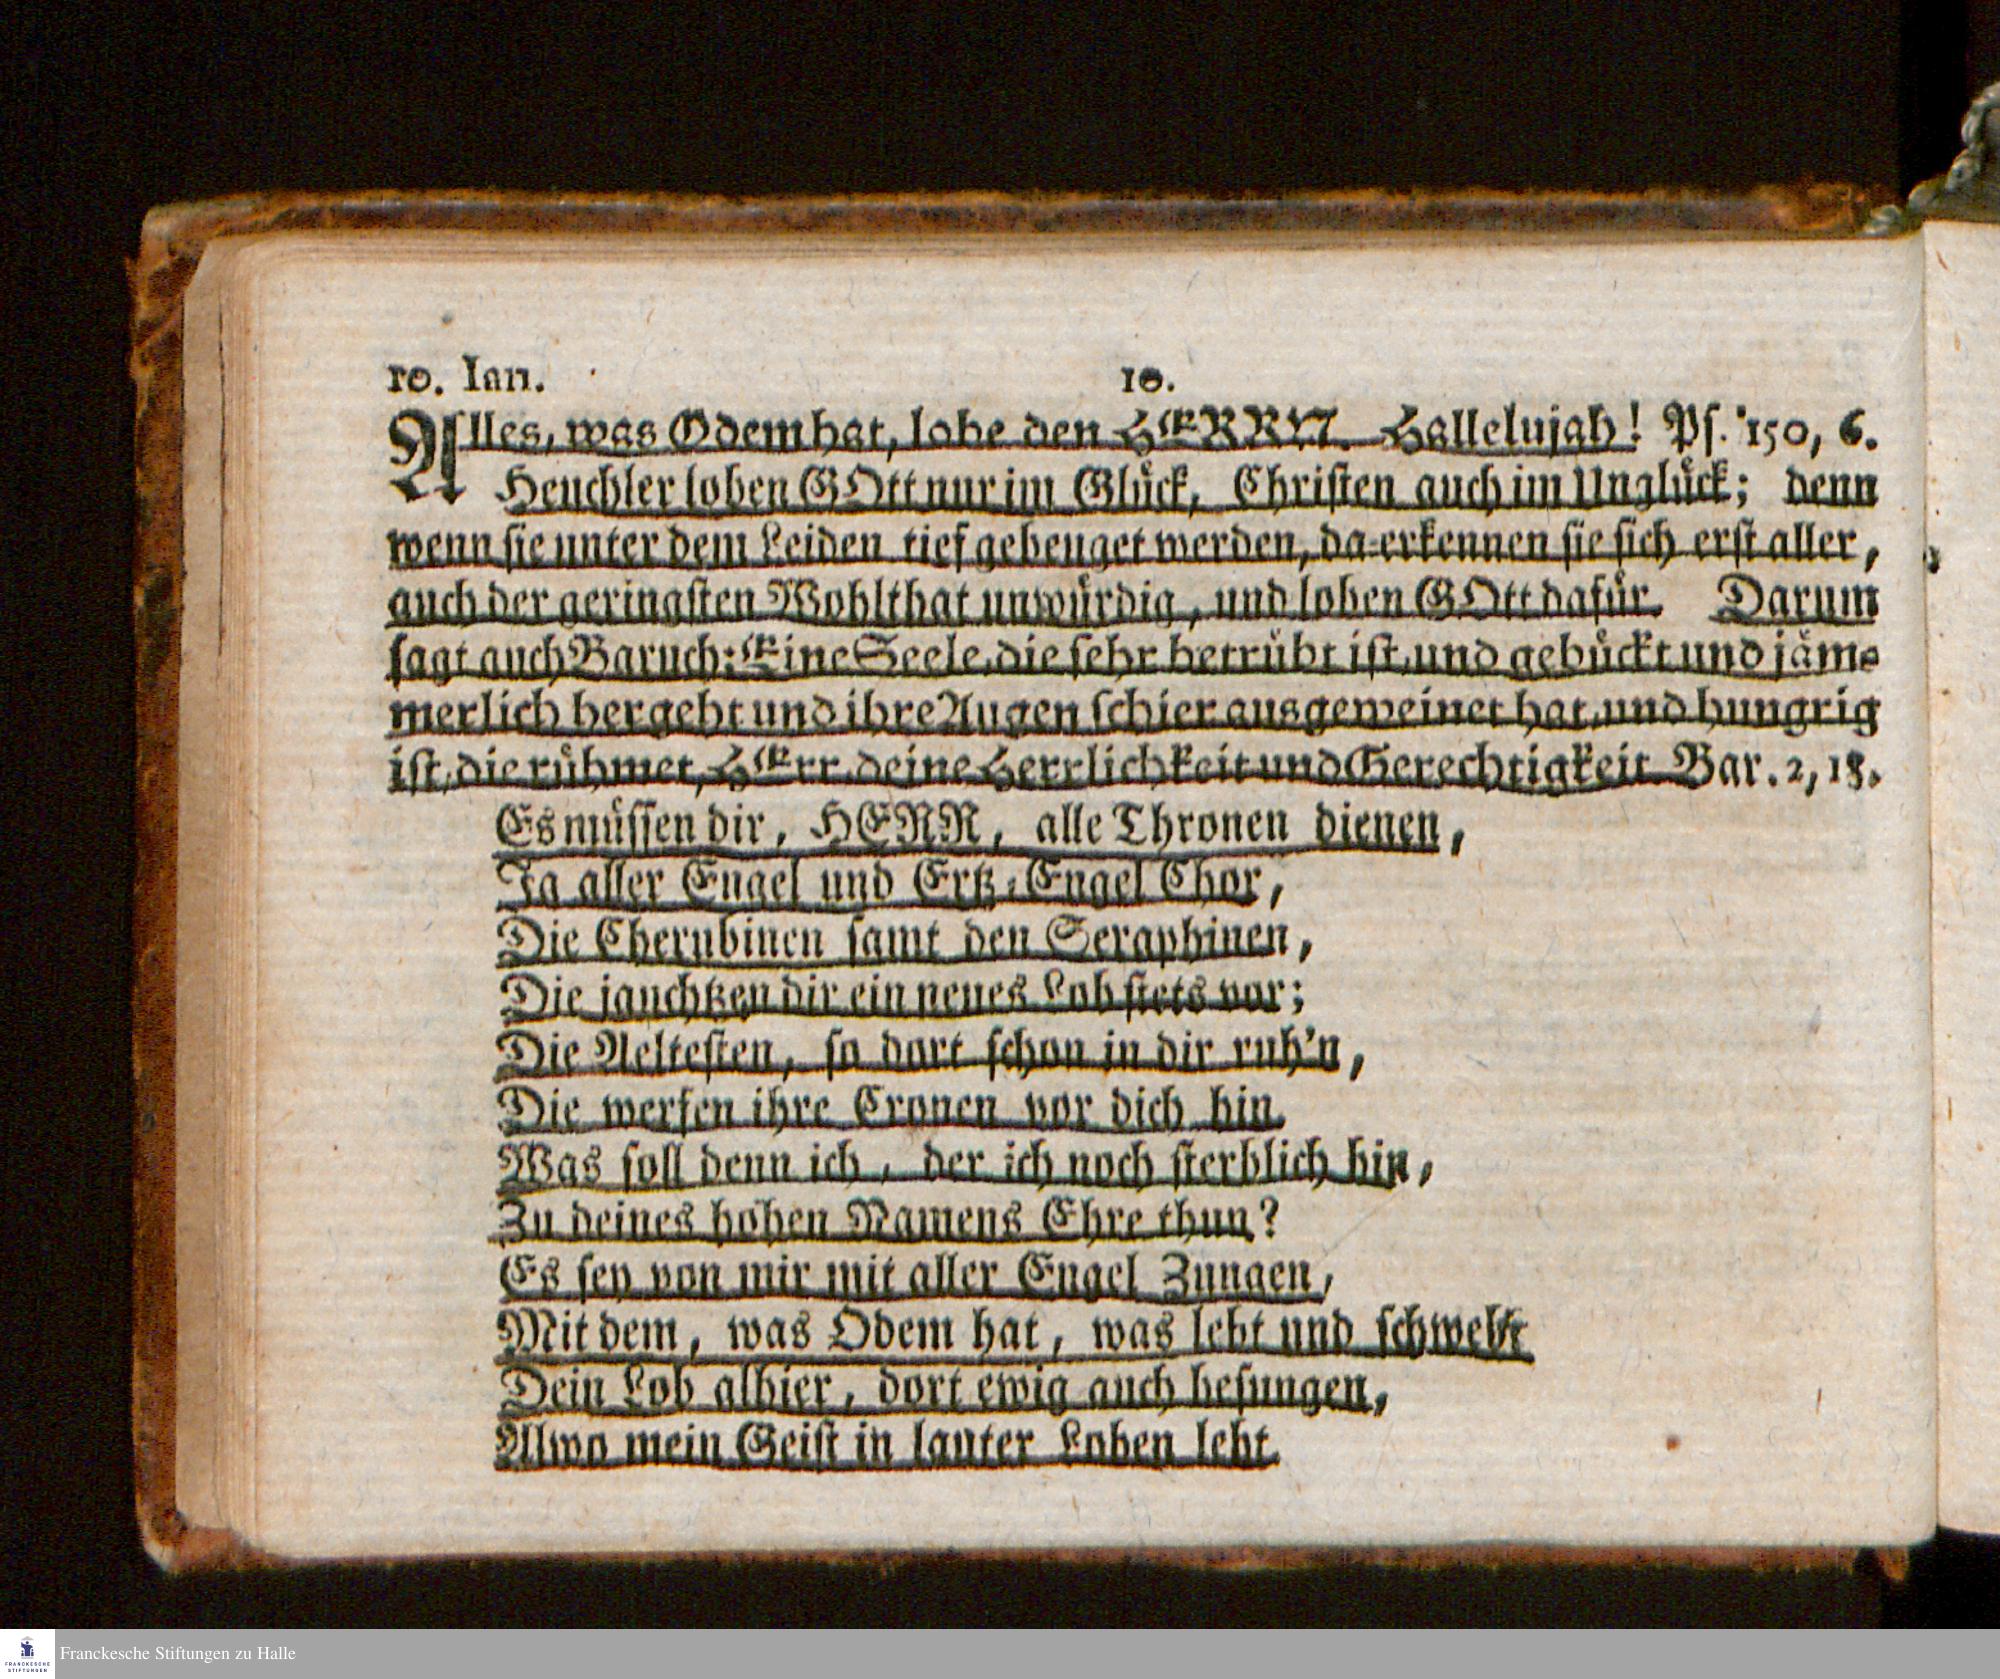 10. Ian. 10.
Alles, was Odem hat, lobe den HERRN. Hallelujah! Pſ. 150, 6.
Heuchler loben GOtt nur im Gluͤck, Chriſten auch im Ungluͤck; denn
wenn ſie unter dem Leiden tief gebeuget werden, da erkennen ſie ſich erſt aller,
auch der geringſten Wohlthat unwuͤrdig, und loben GOtt dafuͤr. Darum
ſagt auch Baruch: Eine Seele, die ſehr betruͤbt iſt, und gebuͤckt und jaͤm-
merlich hergeht und ihre Augen ſchier ausgeweinet hat, und hungrig
iſt, die ruͤhmet, HErr, deine Herrlichkeit und Gerechtigkeit. Bar. 2, 18.
Es muͤſſen dir, HERR, alle Thronen dienen,
Ja aller Engel und Ertz-Engel Chor,
Die Cherubinen ſamt den Seraphinen,
Die jauchtzen dir ein neues Lob ſtets vor;
Die Aelteſten, ſo dort ſchon in dir ruh'n,
Die werfen ihre Cronen vor dich hin.
Was ſoll denn ich, der ich noch ſterblich bin,
Zu deines hohen Namens Ehre thun?
Es ſey von mir mit aller Engel Zungen,
Mit dem, was Odem hat, was lebt und ſchwebt
Dein Lob alhier, dort ewig auch beſungen,
Alwo mein Geiſt in lauter Loben lebt.
FRANCKESCHE
STIFTUNGEN
Franckesche Stiftungen zu Halle